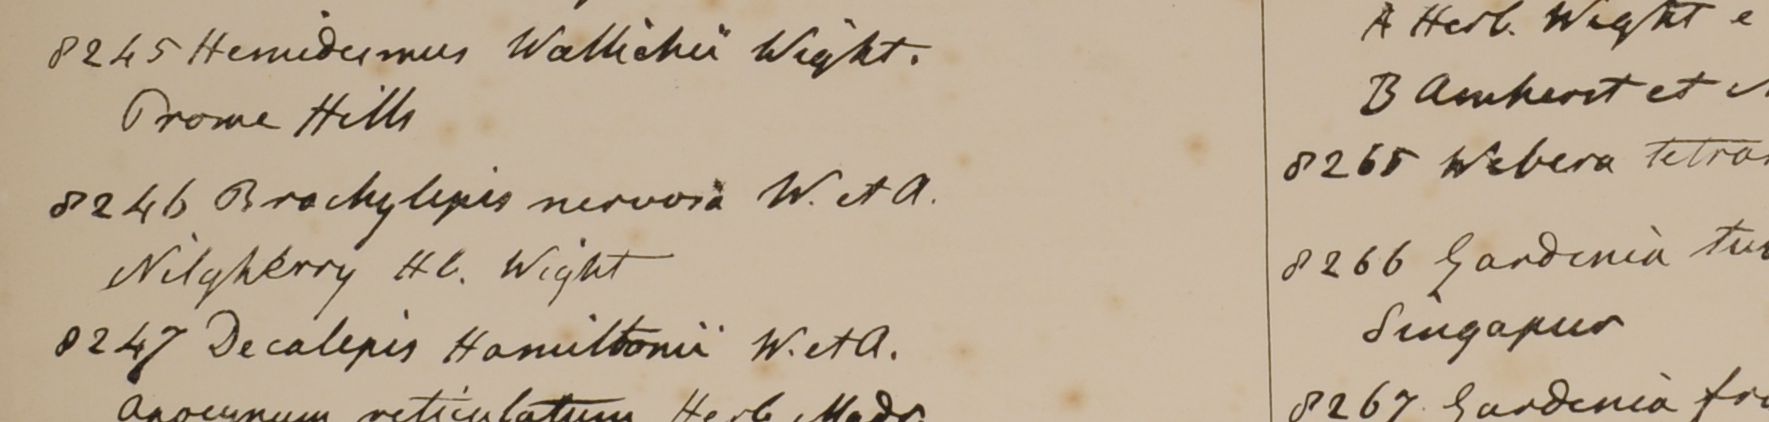 8245 Hemidesmus Wallichii Wight.
Prome Hills
8246 Brachylepis nervosa W. et A.
Nilgherry Hb. Wight
8247 Decalepis Hamiltonii W. et A.
Apocynum reticulatum Herb. Madr.
A Herb. Wight e
B Amherst et
8265 Webera tetran
8266 Gardenia
Singapur
8267 Gardenia